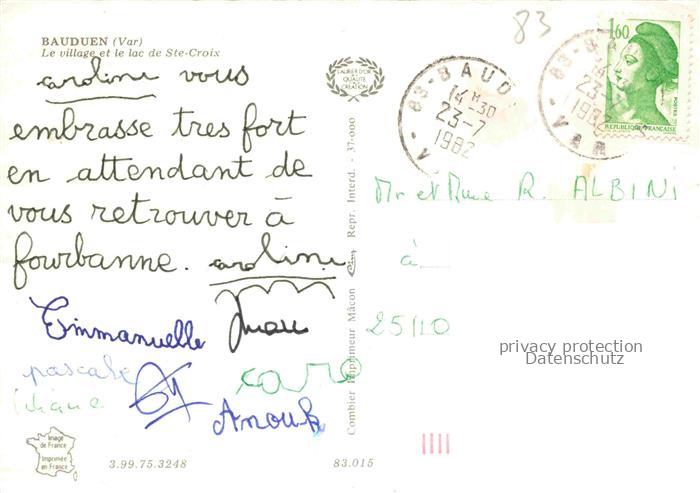 BAUDUEN (Var)
Le village et le lac de Ste-Croix
caroline vous
embrasse tres fort
en attendant de
vous retrouver à
fourbanne. caroline
Emmanuelle
pascale
caro
Anouk
Image
de France
Imprimée
en France
3.99.75.3248
83.015
LAURIER D'OR
QUALITÉ
CRÉATION
Combier Imprimeur Mâcon Repr. Interd. - 37-000
83
83-BAUD
14H30
23-7
1982
VAR
1,60
POSTES
REPUBLIQUE FRANÇAISE
Mr et Mme R. ALBINI
à
25110
privacy protection
Datenschutz